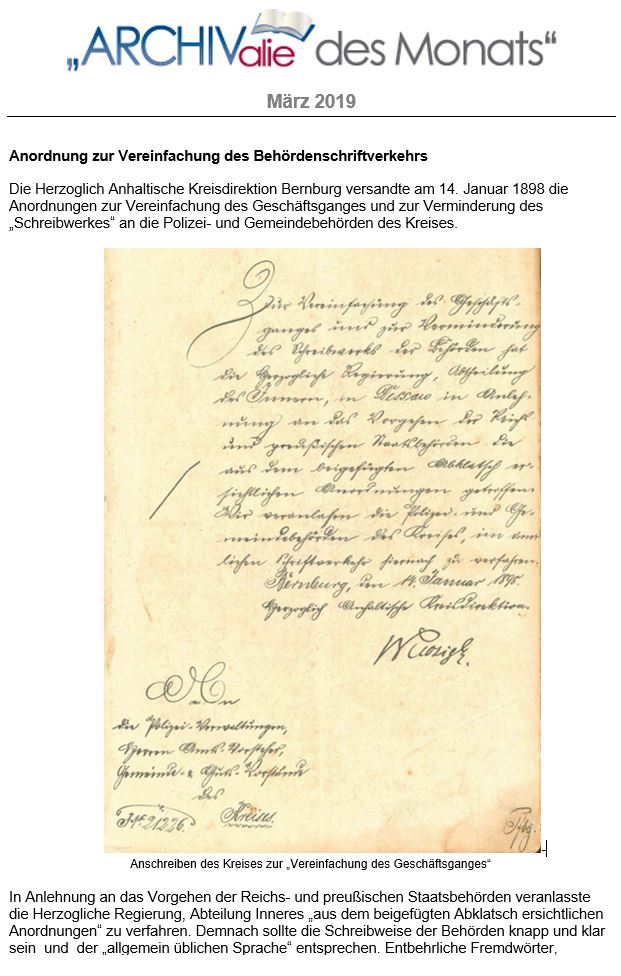 „ARCHIValie des Monats“
März 2019
Anordnung zur Vereinfachung des Behördenschriftverkehrs
Die Herzoglich Anhaltische Kreisdirektion Bernburg versandte am 14. Januar 1898 die
Anordnungen zur Vereinfachung des Geschäftsganges und zur Verminderung des
„Schreibwerkes“ an die Polizei- und Gemeindebehörden des Kreises.
Zur Vereinfachung des Geschäfts-
ganges und zur Verminderung
des Schreibwerks der Behörden hat
die Herzogliche Regierung, Abtheilung
des Innern, in Dessau in Anleh-
nung an das Vorgehen der Reichs
und preußischen Staatsbehörden die
aus dem beigefügten Abklatsch er-
sichtlichen Anordnungen getroffen.
Wir veranlassen die Polizei- und Ge-
meindebehörden des Kreises, im amt
lichen Schriftverkehr hiernach zu verfahren.
Bernburg, den 14. Januar 1898.
Herzoglich Anhaltische Kreisdirektion.
An
die Polizei-Verwaltungen,
Herren Amts-Vorsteher,
Gemeinde- & Guts-Vorstände
des
Kreises.
21226.
Anschreiben des Kreises zur „Vereinfachung des Geschäftsganges“
In Anlehnung an das Vorgehen der Reichs- und preußischen Staatsbehörden veranlasste
die Herzogliche Regierung, Abteilung Inneres „aus dem beigefügten Abklatsch ersichtlichen
Anordnungen“ zu verfahren. Demnach sollte die Schreibweise der Behörden knapp und klar
sein und der „allgemein üblichen Sprache“ entsprechen. Entbehrliche Fremdwörter,